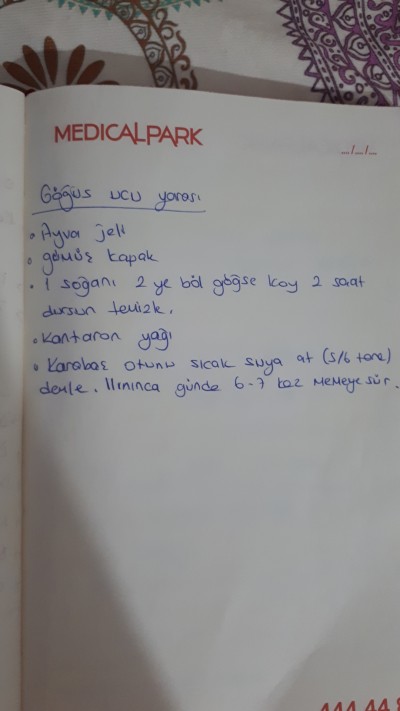 MEDICALPARK
../../..
Göğüs ucu yarası
• Ayva jeli
• gümüş kapak
• 1 soğanı 2 ye böl göğse koy 2 saat
dursun temizle.
• Kantaron yağı
• Karabaş otunu sıcak suya at (5/6 tane)
demle. Ilınınca günde 6-7 kez memeye sür.
444 44 8